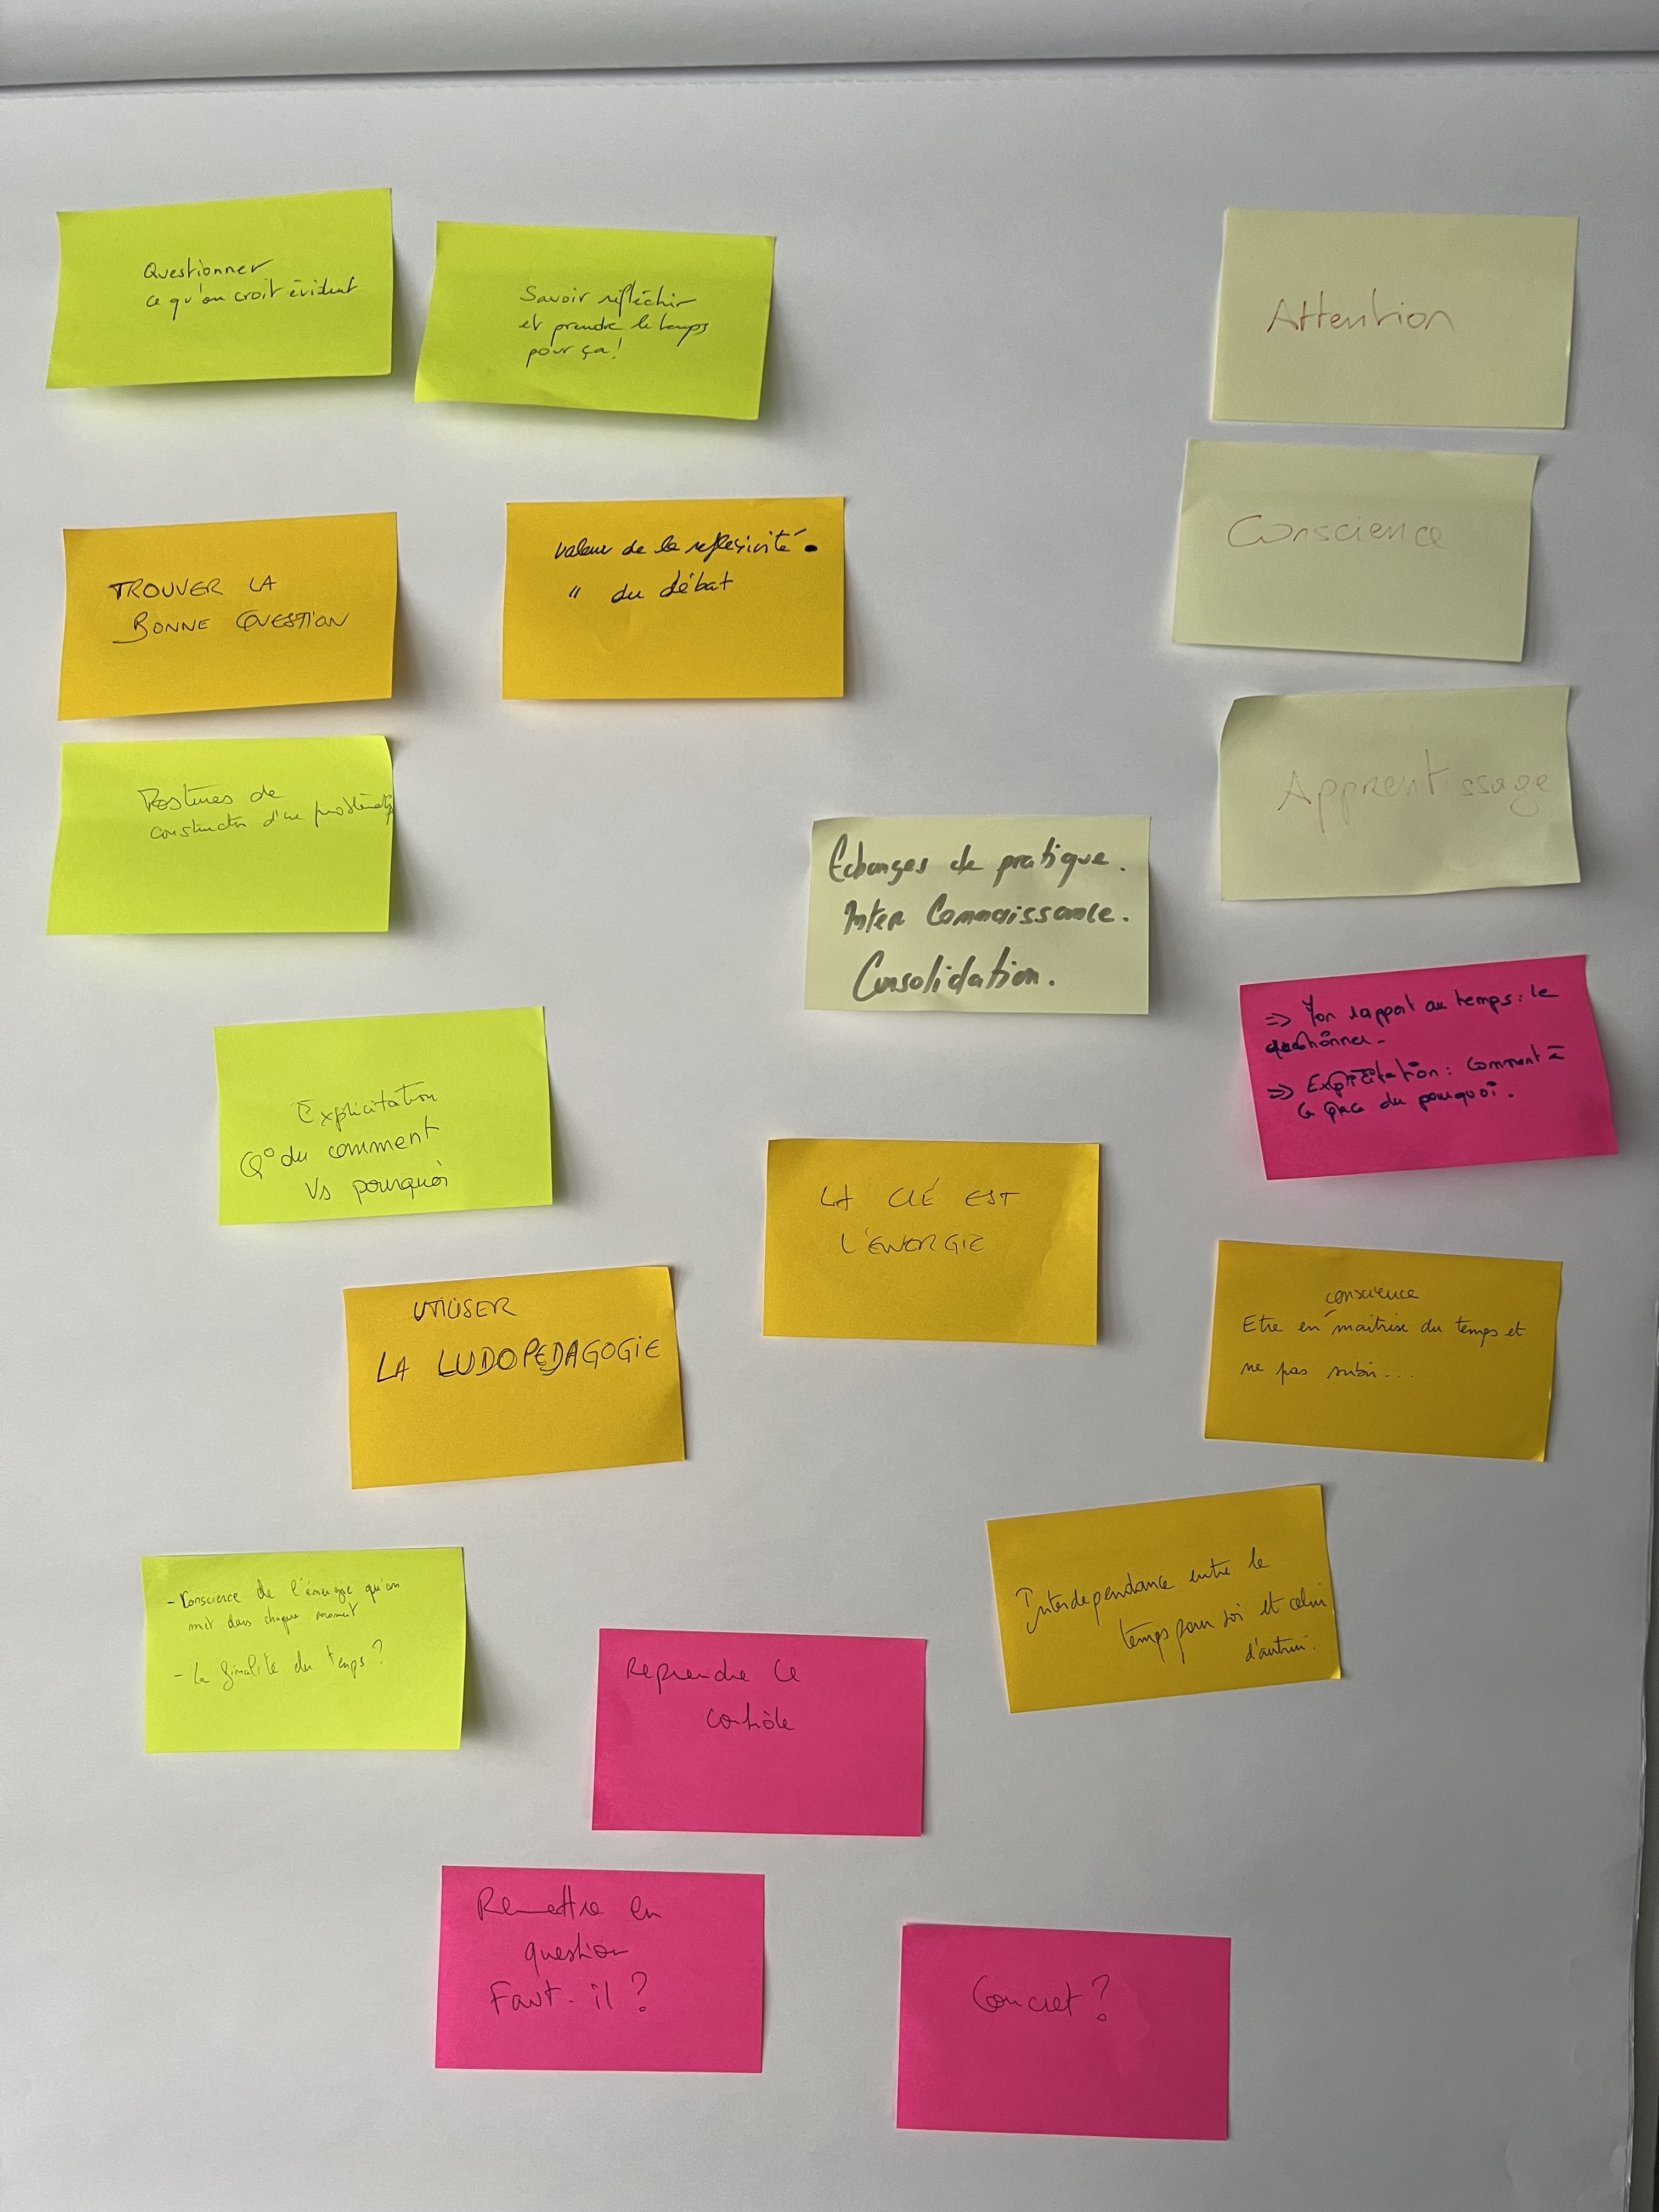 Questionner
ce qu'on croit évident
Savoir réfléchir
et prendre le temps
pour ça !
Attention
Conscience
TROUVER LA
BONNE QUESTION
valeur de la réflexivité.
" du débat
Apprentissage
Postures de
constructo d'une problématq
Echanges de pratique.
Inter Connaissance.
Consolidation.
=> Mon rapport au temps : le
questionner -
=> Explicitation : comment à
la place du pourquoi.
Explicitation
Q° du comment
Vs pourquoi
LA CLÉ EST
L'ÉNERGIE
UTILISER
LA LUDOPEDAGOGIE
conscience
Etre en maitrise du temps et
ne pas subir...
Interdependance entre le
temps pour soi et celui
d'autrui.
- Conscience de l'énergie qu'on
met dans chaque moment
- La finalité du temps ?
Reprendre le
contrôle
Remettre en
question
Faut-il ?
Concret ?